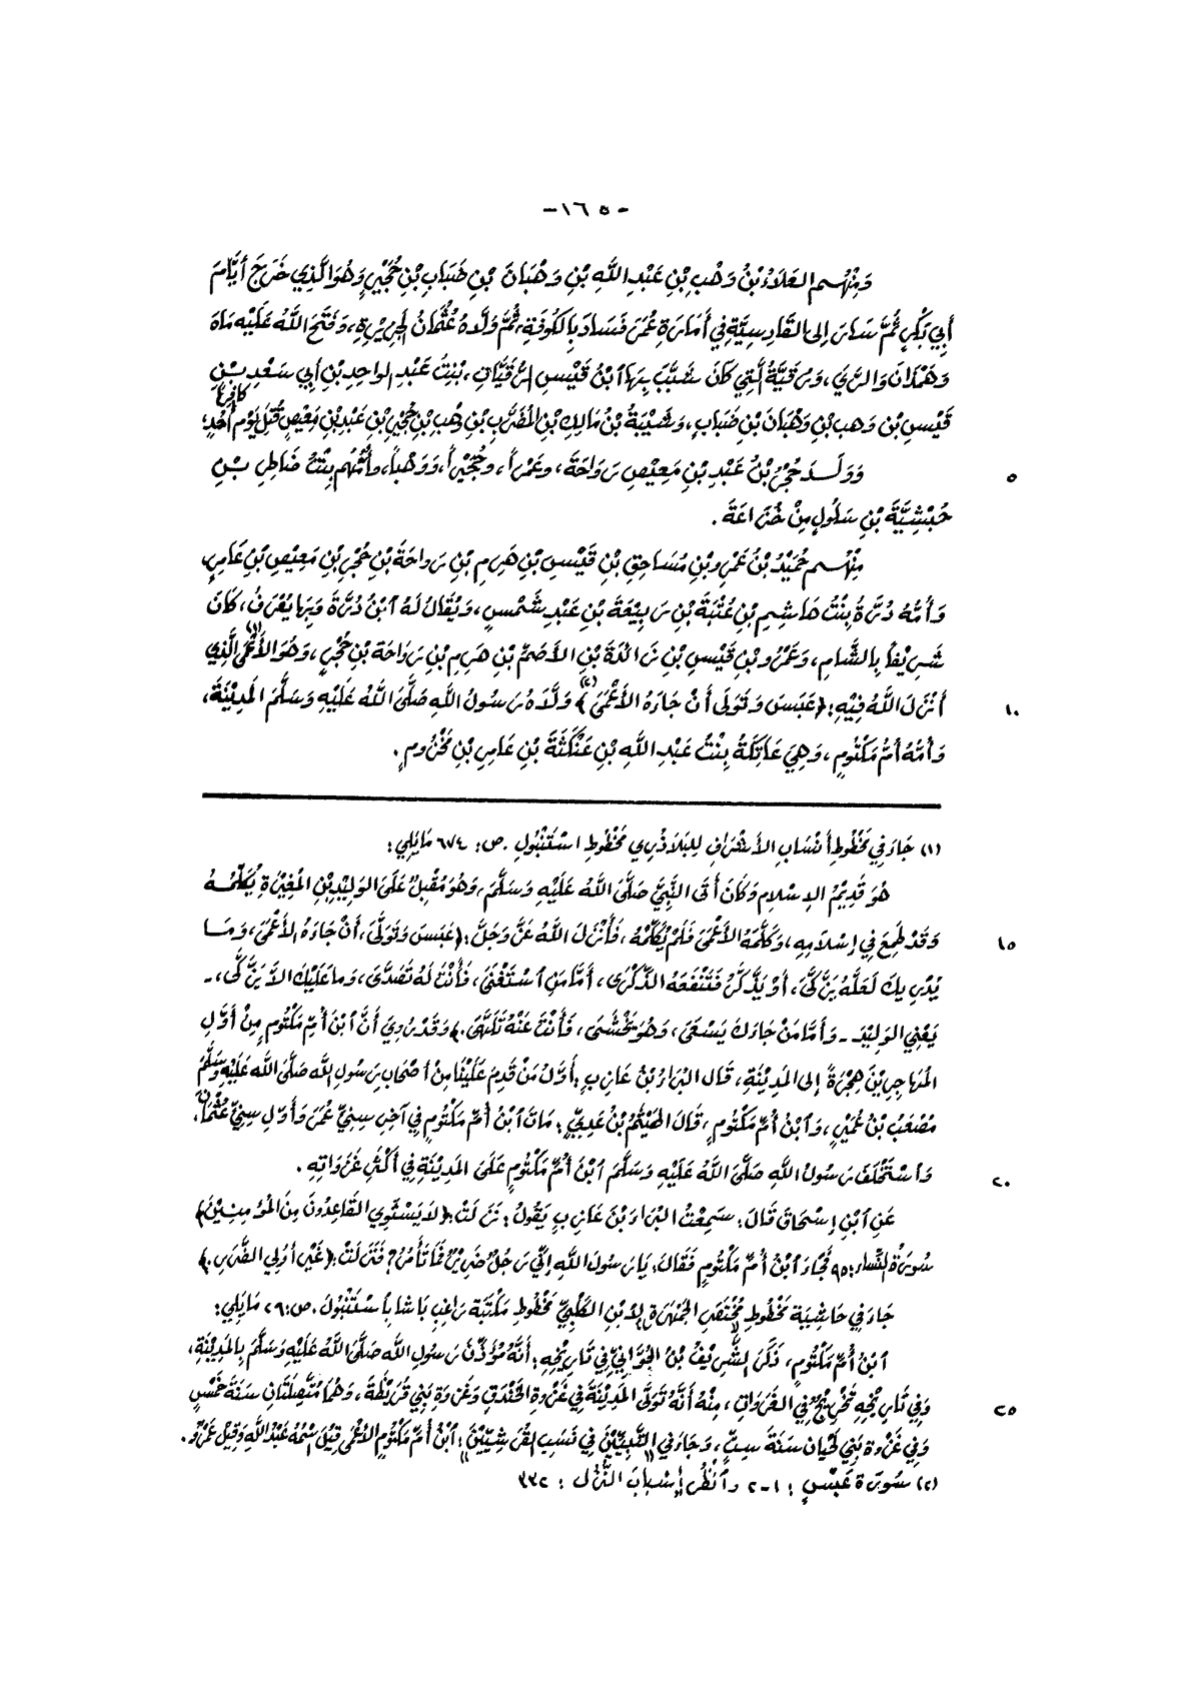 -١٦٥-
وَمِنْهُم العَلَاءُ بْنُ وَهْبِ بْنِ عَبْدِ اللَّهِ بْنِ وَهْبَانَ بْنِ ضَبَابِ بْنِ حُجَيْرٍ وَهُوَ الَّذِي خَرَجَ أَيَّامَ
أَبِي بَكْرٍ ثُمَّ سَارَ إِلَى القَادِسِيَّةِ فِي أَمَارَةِ عُمَرَ فَسَادَ بِالكُوفَةِ، ثُمَّ وَلَّاهُ عُثْمَانُ الجَزِيْرَةَ، وَفَتَحَ اللَّهُ عَلَيْهِ مَاهَ
وَهَمْذَانَ وَالرَّيَّ، وَرُقَيَّةُ الَّتِي كَانَ شَبَّبَ بِهَا ٱبْنُ قَيْسِ الرُّقَيَّاتِ، بِنْتُ عَبْدِ الوَاحِدِ بْنِ أَبِي سَعْدِ بْنِ
قَيْسِ بْنِ وَهبِ بْنِ وَهْبَانَ بْنِ ضَبَابٍ، وَشَيْبَةُ بْنُ مَالِكِ بْنِ المُضَرَّبِ بْنِ وَهْبِ بْنِ حُجَيْرِ بْنِ عَبْدِ بْنِ مَعِيصٍ قُتِلَ يَوْمَ أُحُدٍ كَافِراً؛
٥ وَوَلَدَ حُجْرُ بْنُ عَبْدِ بْنِ مَعِيْصٍ رَوَاحَةَ، وعَمْراً، وحُجَيْراً، وَوَهْباً، وأُمُّهُم بِنْتُ ضَاطِرِ بْنِ
حُبْشِيَّةَ بْنِ سَلُولٍ مِنْ خُزَاعَةَ.
مِنْهُم حُمَيْدُ بْنُ عَمْرِو بْنِ مُسَاحِقِ بْنِ قَيْسِ بْنِ هَرِمِ بْنِ رَوَاحَةَ بْنِ حُجْرِ بْنِ مَعِيْصِ بْنِ عَامِرٍ،
وَأُمُّهُ دُرَّةُ بِنْتُ هَاشِمِ بْنِ عُتْبَةَ بْنِ رَبِيْعَةَ بْنِ عَبْدِ شَمْسٍ، وَيُقَالُ لَهُ ٱبْنُ دُرَّةَ وَبِهَا يُعْرَفُ، كَانَ
شَرِيْفاً بِالشَّامِ، وَعَمْرُو بْنُ قَيْسِ بْنِ زَائِدَةَ بْنِ الأَصَمِّ بْنِ هَرِمِ بْنِ رَوَاحَةَ بْنِ حُجْرٍ، وَهُوَ الأَعْمَى(١) الَّذِي
١٠ أَنْزَلَ اللَّهُ فِيْهِ: ﴿عَبَسَ وَتَوَلَى أَنْ جَاءَهُ الأَعْمَى﴾(٢) وَلَّاهُ رَسُولُ اللهِ صَلَّى اللهُ عَلَيْهِ وَسَلَّمَ المَدِيْنَةَ،
وَأُمُّهُ أُمُّ مَكْتُومٍ، وَهِيَ عَاتِكَةُ بِنْتُ عَبْدِ اللَّهِ بْنِ عَنْكَثَةَ بْنِ عَامِرِ بْنِ مَخْزُومٍ.
(١) جَاءَ فِي مَخْطُوطِ أَنْسَابِ الأَشْرَافِ لِلبَلَاذُرِي مَخْطُوطِ اسْتَنْبُولِ. ص: ٦٧٤ مَايَلِي:
هُوَ قَدِيْمُ الإِسْلَامِ وَكَانَ أَتَى النَّبِيَّ صَلَّى اللَّهُ عَلَيْهِ وَسَلَّمَ، وَهُوَ مُقْبِلٌ عَلَى الوَلِيْدِ بْنِ المُغِيْرَةِ يُكَلِّمُهُ
١٥ وَقَدْ طَمِعَ فِي إِسْلَامِهِ، وَكَلَّمَهُ الأَعْمَى فَلَمْ يُكَلِّمْهُ، فَأَنْزَلَ اللَّهُ عَزَّ وَجَلَّ: ﴿عَبَسَ وَتَوَلَّى، أَنْ جَاءَهُ الأَعْمَى، وَمَا
يُدْرِيكَ لَعَلَّهُ يَزَّكَّى، أَوْ يَذَّكَّرُ فَتَنْفَعَهُ الذِّكْرَى، أَمَّا مَنِ ٱسْتَغْنَى، فَأَنْتَ لَهُ تَصَدَّى، وَمَا عَلَيْكَ أَلَّا يَزَّكَّى، -
يَعْنِي الوَلِيْدَ - وَأَمَّا مَنْ جَاءَكَ يَسْعَى، وَهُوَ يَخْشَى، فَأَنْتَ عَنْهُ تَلَهَّى.﴾ وَقَدْ رُوِيَ أَنَّ ٱبْنَ أُمِّ مَكْتُومٍ مِنْ أَوَّلِ
المُهَاجِرِيْنَ هِجْرَةً إِلى المَدِيْنَةِ، قَال البَرَاءُ بْنُ عَازِبٍ: أَوَّلُ مَنْ قَدِمَ عَلَيْنَا مِنْ أَصْحَابِ رَسُولِ اللهِ صَلَّى اللهُ عَلَيْهِ وَسَلَّمَ
مُصْعَبُ بْنُ عُمَيْرٍ، وَٱبْنُ أُمِّ مَكْتُومٍ، قَالَ الهَيْثَمُ بْنُ عَدِيٍّ: مَاتَ ٱبْنُ أُمِّ مَكْتُومٍ فِي آخِرِ سِنِيِّ عُمَرَ وَأَوَّلِ سِنِيِّ عُثْمَانَ،
٢٠ وَٱسْتَخْلَفَ رَسُولُ اللهِ صَلَّى اللَّهُ عَلَيْهِ وَسَلَّمَ ٱبْنَ أُمِّ مَكْتُومٍ عَلَى المَدِيْنَةِ فِي أَكْثَرِ غَزَوَاتِهِ.
عَنِ ٱبْنِ إِسْحَاقَ قَالَ: سَمِعْتُ البَرَاءَ بْنَ عَازِبٍ يَقُولُ: نَزَلَتْ: ﴿لَا يَسْتَوِي القَاعِدُونَ مِنَ المُؤْمِنِيْنَ﴾
سُورَةُ النِّسَاء: ٩٥ فَجَاءَ ٱبْنُ أُمِّ مَكْتُومٍ فَقَالَ: يَا رَسُولَ اللهِ إِنِّي رَجُلٌ ضَرِيْرٌ فَمَا تَأْمُرُ؟ فَنَزَلَتْ: ﴿غَيْرُ أُولِي الضَّرَرِ.﴾
جَاءَ فِي حَاشِيَةِ مَخْطُوطِ مُخْتَصَرِ الجَمْهَرَةِ لِابْنِ الكَلْبِيِّ مَخْطُوطِ مَكْتَبَةِ رَاغِب بَاشَا بِاسْتَنْبُولَ. ص: ٢٩ مَايَلِي:
ٱبْنُ أُمِّ مَكْتُومٍ، ذَكَرَ الشَّرِيْفُ بْنُ الجَوَّانِيِّ فِي تَارِيْخِهِ: أَنَّهُ مُؤَذِّنُ رَسُولِ الله صَلَّى اللَّهُ عَلَيْهِ وَسَلَّمَ بِالمَدِيْنَةِ،
٢٥ وَفِي تَارِيْخِهِ فِي الغَزَوَاتِ، مِنْهُ أَنَّهُ تَوَلَّى المَدِيْنَةَ فِي غَزْوَةِ الخَنْدَقِ وَغَزْوَةِ بَنِي قُرَيْظَةَ، وَهُمَا مُتَّصِلَتَانِ سَنَةَ خَمْسٍ
وَفِي غَزْوَةِ بَنِي لَحْيَانَ سَنَةَ سِتٍّ، وَجَاءَ فِي "التَّبْيِيْنِ فِي نَسَبِ القُرَشِيِّيْنَ": ٱبْنُ أُمِّ مَكْتُومٍ الأَعْمَى قِيْلَ اسْمُهُ عَبْدُ اللَّهِ وَقِيْلَ عَمْرٌو.
(٢) سُورَة عَبَسَ: ١-٢ وٱنْظُر إِسْبَابَ النُّزُل: ٣٣٢